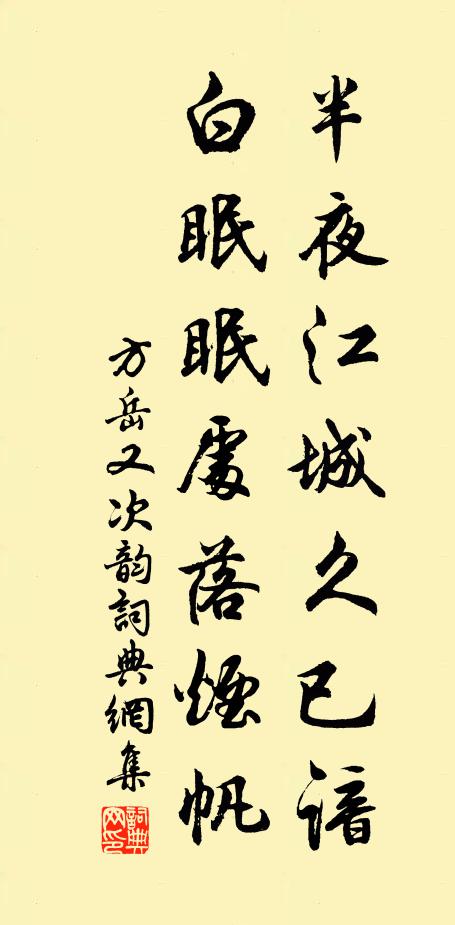 半夜江城久已諳
白眠眠處落煙帆
方岳又次韵詞典網集
詞典網印